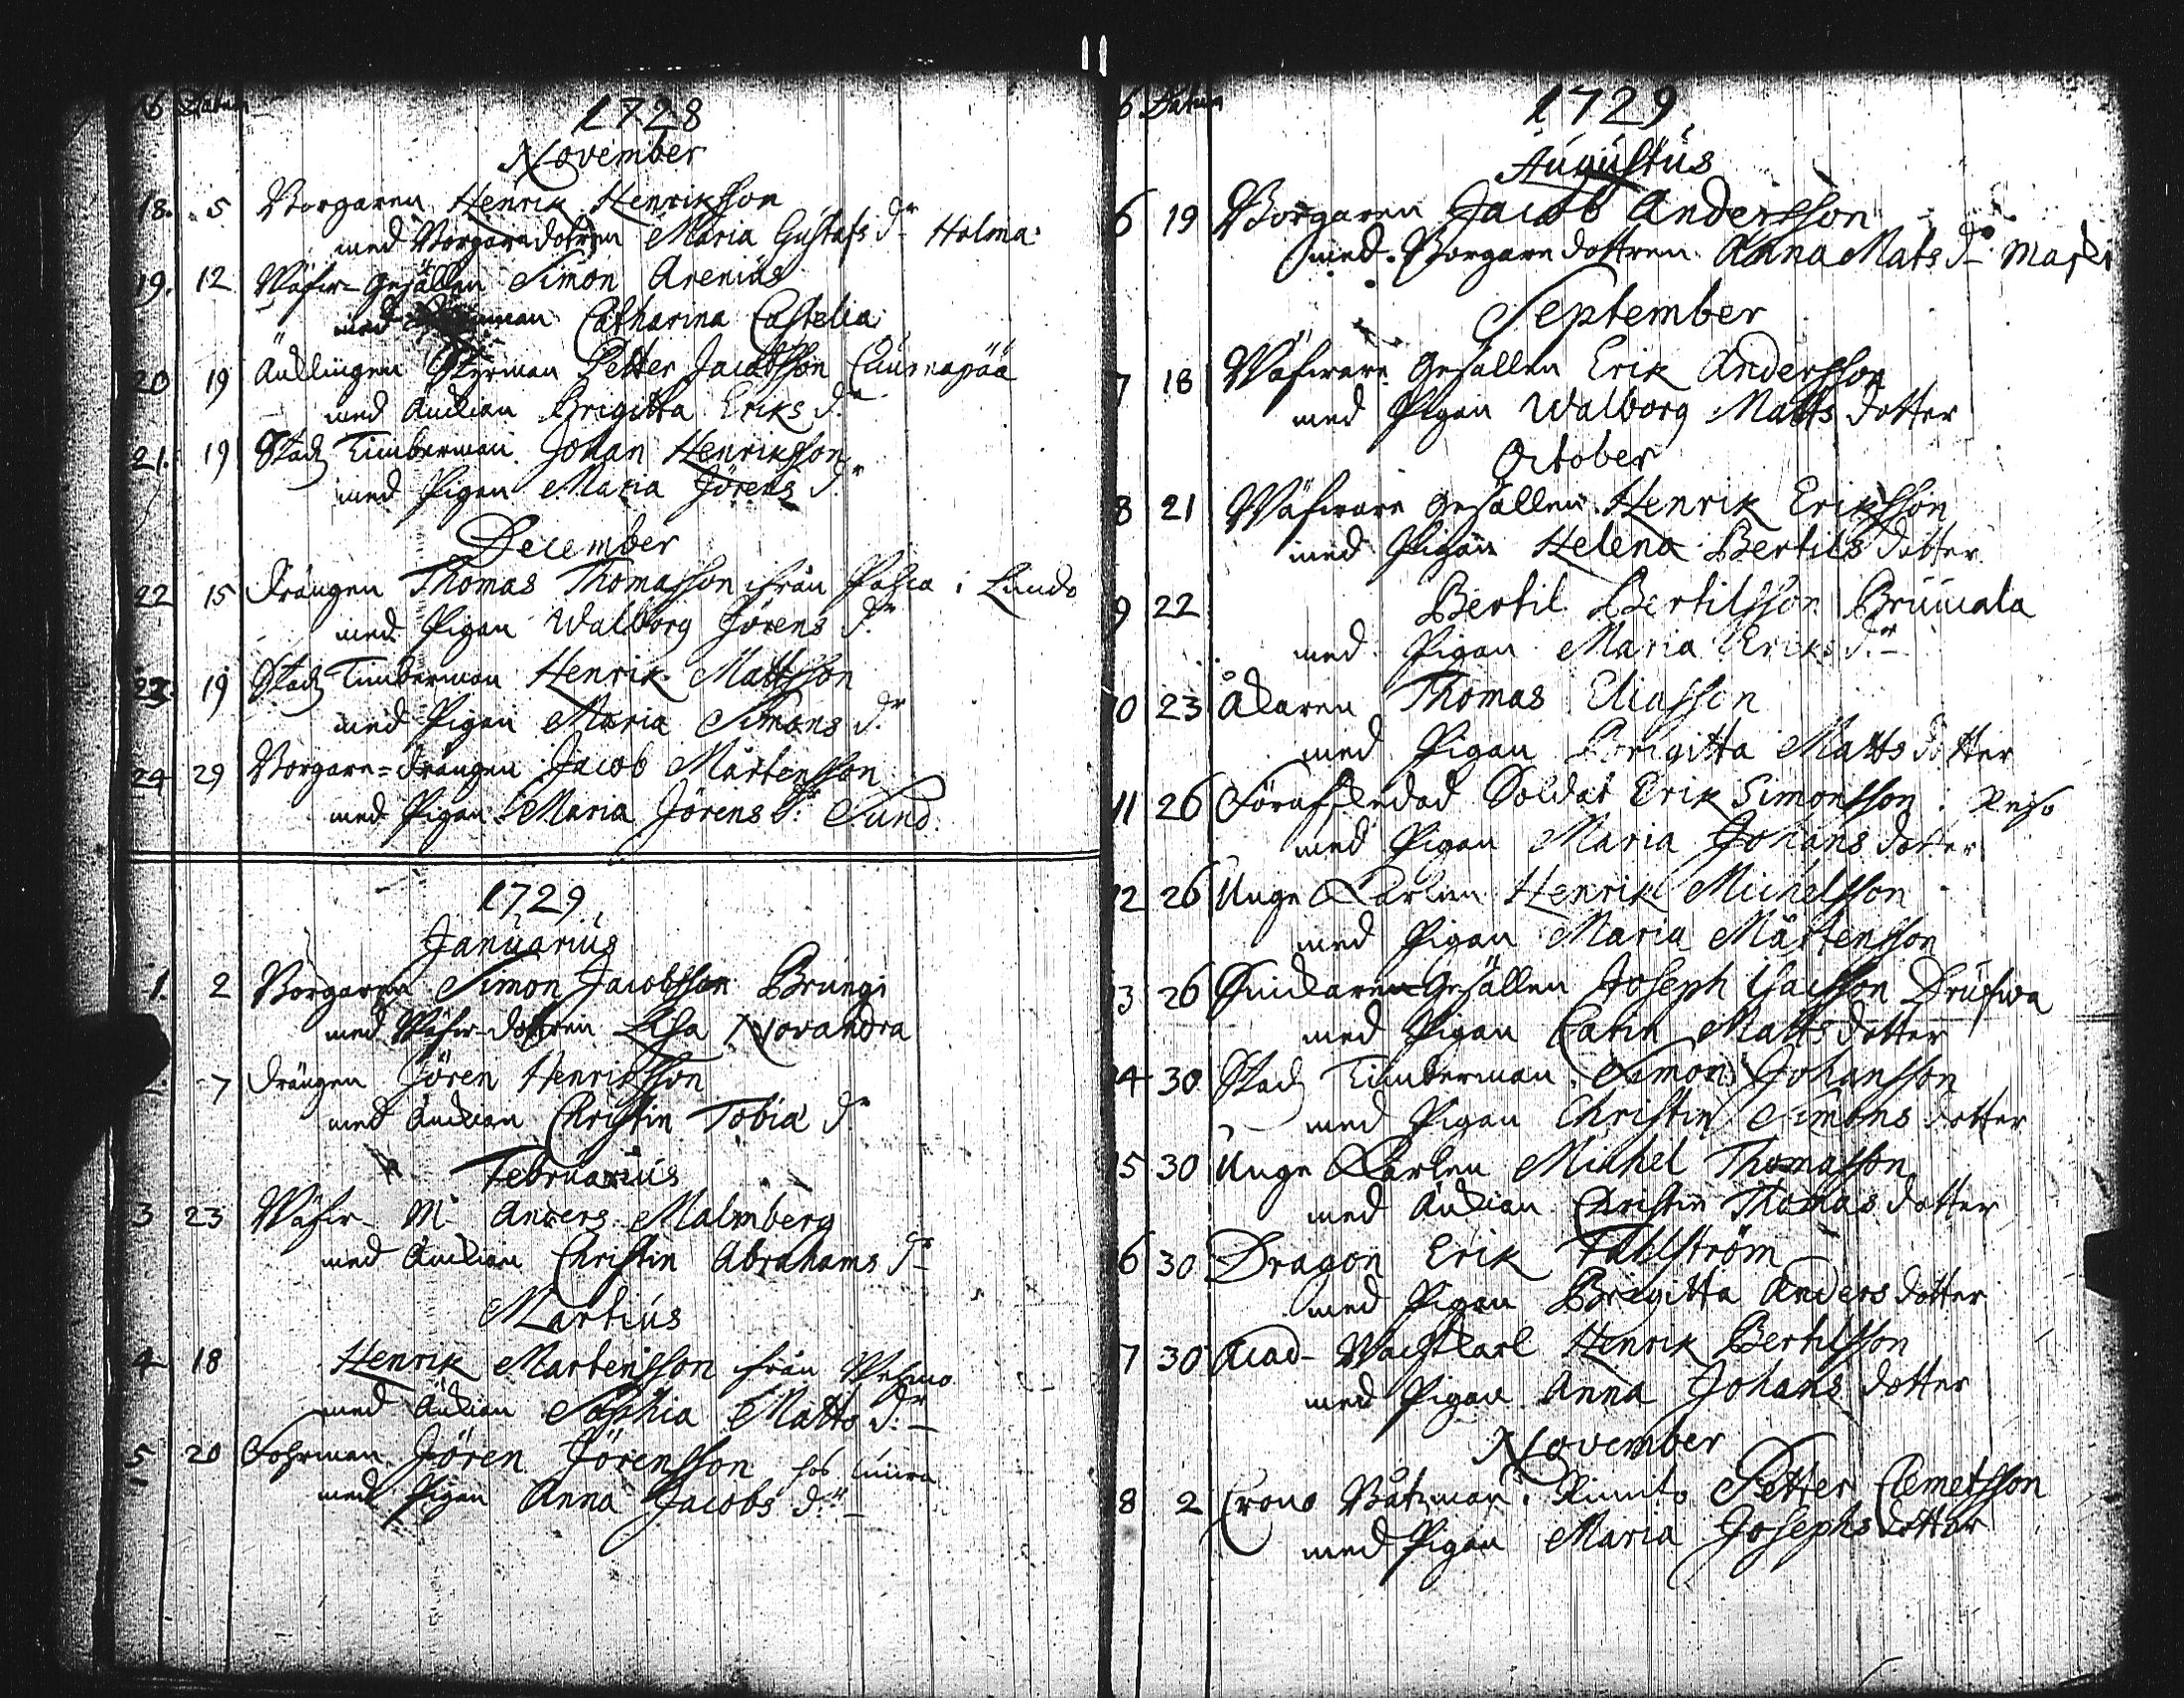 Datum
1728
November
18. 5 Borgaren Henrik Henriksson
med Borgaredotren Maria Gustafs dr Holma
19. 12 Wäfw-Gesällen Simon Arenius
med Catharina Castelia
20 19 Änklingen Styrman Petter Jacobsson
med Änkian Brigitta Eriks dr
21. 19 Stadz Timberman Johan Henriksson
med Pigan Maria Jörens dr
December
22 15 Drängen Thomas Thomasson ifrån i Lundo
med Pigan Walborg Jörens dr
23. 19 Stadz Timberman Henrik Mattsson
med Pigan Maria Simons dr
24 29 Borgare-Drängen Jacob Mårtensson
med Pigan Maria Jörens dr Sund.
1729
Januarius
1. 2 Borgaren Simon Jacobsson Brungi
med dottren Lisa Novandra
2. 7 Drängen Jören Henriksson
med Änkian Christin Tobiæ dr
Februarius
3 23 Wäfw- M. Anders Malmberg
med Änkian Christin Abrahams dr
Martius
4 18 Henrik Martensson ifrån Wehmo
med Änkian Sophia Matts dr
5 20 Fohrman Jören Jörensson hos
med Pigan Anna Jacobs dr
Datum
1729
Augustus
6 19 Borgaren Jacob Andersson
med Borgaredottren Anna Mats dr Maski
September
7 18 Wäfware Gesällen Erik Andersson
med Pigan Walborg Matts dotter
October
8 21 Wäfware Gesällen Henrik Eriksson
med Pigan Helena Bertils dotter
9 22 Bertil Bertilsson Bruunala
med Pigan Maria Eriks dr
10 23 Åkaren Thomas Eliasson
med Pigan Brigitta Matts dotter
11 26 Förafskedad Soldat Erik Simonsson i Reso
med Pigan Maria Johans dotter
12 26 Unge Karlen Henrik Michelsson
med Pigan Maria Mårtensson
13 26 Snickaren Gesällen Joseph Isacsson Drufwa
med Pigan Carin Matts dotter
14 30. Stadz Timberman Simon Johansson
med Pigan Christin Simons dotter
15 30 Unge Karlen Michel Thomasson
med Änkian Christin Thomas dotter
16 30 Dragon Erik Fahlström
med Pigan Brigitta Anders dotter
17 30 Acad- Wachtkarl Henrik Bertilsson
med Pigan Anna Johans dotter
November
18 2 Crono Båtzman i Rimito Petter Clemetsson
med Pigan Maria Josephs dotter